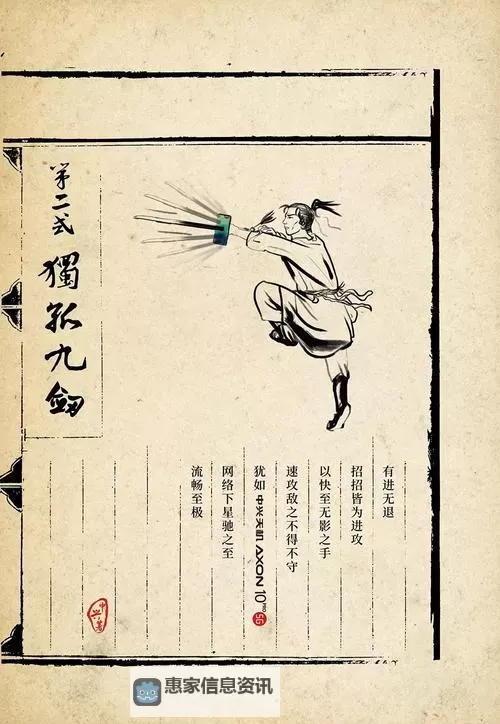 第二式
獨孤九劍
有进无退
招招皆为进攻
以快至无影之手
速攻敌之不得不守
犹如中兴天机AXON 10 PRO 5G
网络下星驰之至
流畅至极
惠家信息资讯